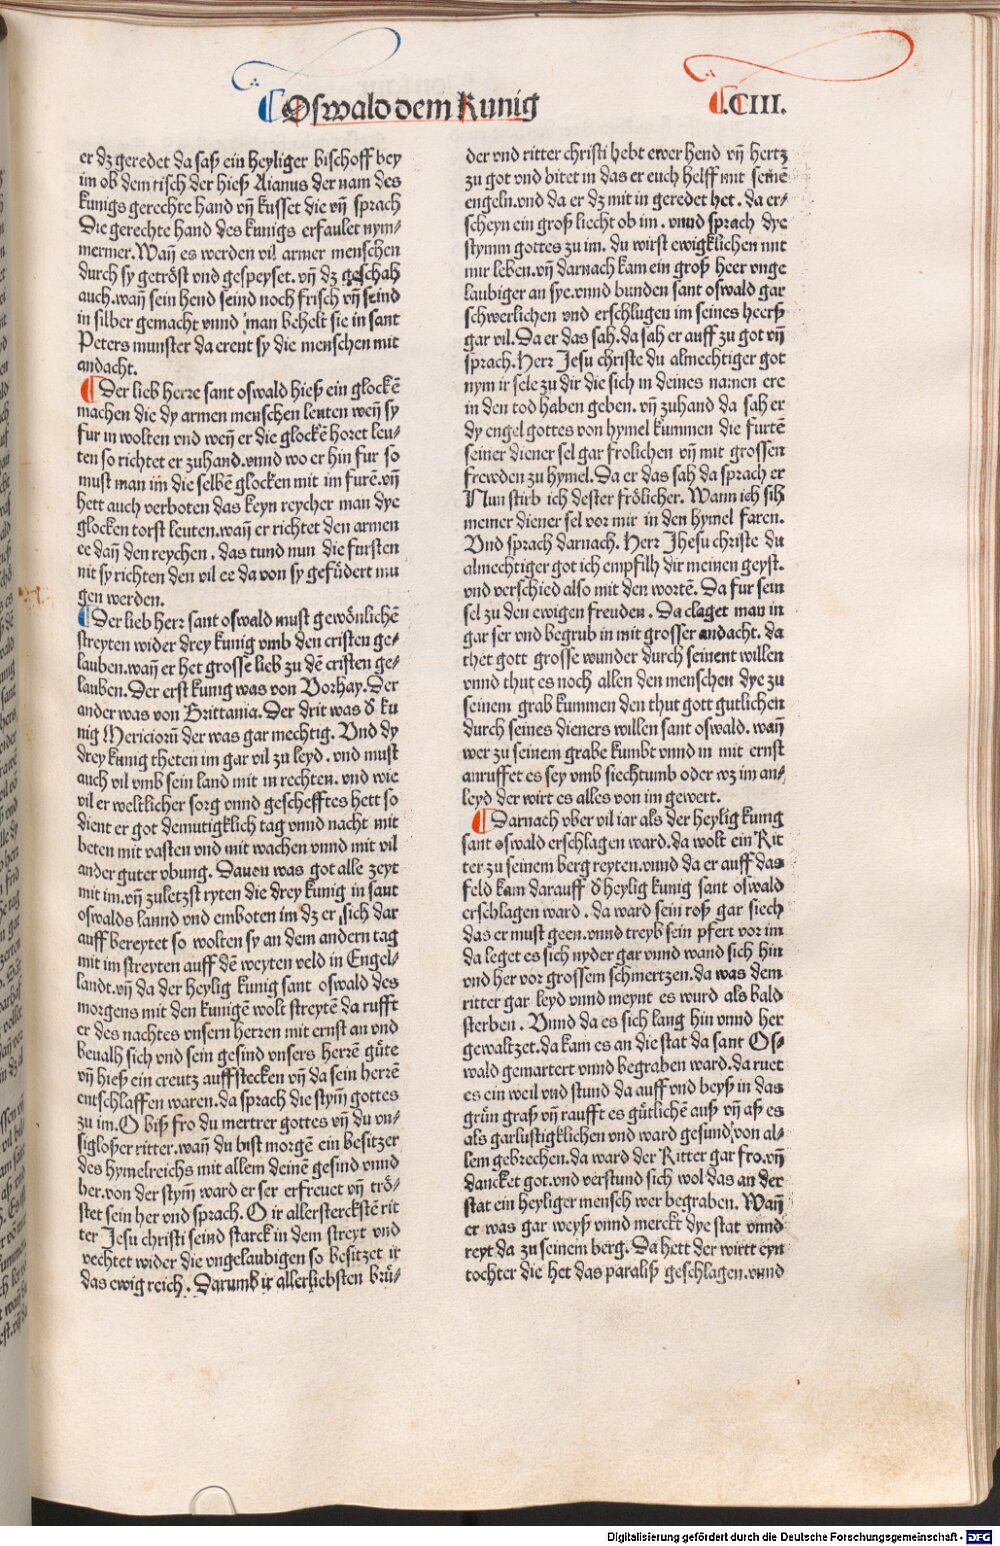 Oswald dem Kunig
.CIII.
er dz geredet da saß ein heyliger bischoff bey
im ob dem tisch der hieß Aianus der nam des
kunigs gerechte hand vñ kusset die vñ sprach
Die gerechte hand des kunigs erfaulet nym⸗
mermer. Wañ es werden vil armer menschen
durch sy getröst vnd gespeyset. vñ dz geschah
auch. wañ sein hend seind noch frisch vñ seind
in silber gemacht vnnd man behelt sie in sant
Peters munster da erent sy die menschen mit
andacht.
Der lieb herre sant oswald hieß ein glockē
machen die dy armen menschen leuten weñ sy
fur in wolten vnd weñ er die glockē horet leu⸗
ten so richtet er zuhand. vnnd wo er hin fur so
must man im die selbē glocken mit im furē. vñ
hett auch verboten das keyn reycher man dye
glocken torst leuten. wañ er richtet den armen
ee dañ den reychen. das tund nun die fursten
nit sy richten den vil ee da von sy gefüdert mu
gen werden.
Der lieb herr sant oswald must gewönlichē
streyten wider drey kunig vmb den cristen ge⸗
lauben. wañ er het grosse lieb zu dē cristen ge⸗
lauben. Der erst kunig was von Borhay. Der
ander was von Brittania. Der drit was d̕ ku
nig Mericiorū der was gar mechtig. Vnd dy
drey kunig theten im gar vil zu leyd. vnd must
auch vil vmb sein land mit in rechten. vnd wie
vil er weltlicher sorg vnnd geschefftes hett so
dient er got demutigklich tag vnnd nacht mit
beten mit vasten vnd mit wachen vnnd mit vil
ander guter vbung. Dauon was got alle zeyt
mit im. vñ zuletzst ryten die drey kunig in sant
oswalds lannd vnd emboten im dz er sich dar
auff bereytet so wolten sy an dem andern tag
mit im streyten auff dē weyten veld in Engel⸗
landt. vñ da der heylig kunig sant oswald des
morgens mit den kunigē wolt streytē da rufft
er des nachtes vnsern herren mit ernst an vnd
beualh sich vnd sein gesind vnsers herrē gute
vñ hieß ein creutz auffstecken vñ da sein herrē
entschlaffen waren. da sprach die stym̄ gottes
zu im. O biß fro du mertrer gottes vñ du vn⸗
sigloßer ritter. wañ du bist morgē ein besitzer
des hymelreichs mit allem deinē gesind vnnd
her. von der stym̄ ward er ser erfreuet vñ trö⸗
stet sein her vnd sprach. O ir allersterckstē rit
ter Jesu christi seind starck in dem streyt vnd
vechtet wider die vngelaubigen so besitzet ir
das ewig reich. Darumb ir allerliebsten brü⸗
der vnd ritter christi hebt ewer hend vñ hertz
zu got vnd bitet in das er euch helff mit seinē
engeln. vnd da er dz mit in geredet het. da er⸗
scheyn ein groß liecht ob im. vnnd sprach dye
stymm gottes zu im. du wirst ewigklichen mit
mir leben. vñ darnach kam ein groß heer vnge
laubiger an sye. vnnd bunden sant oswald gar
schwerlichen vnd erschlugen im seines heerß
gar vil. Da er das sah. da sah er auff zu got vñ
sprach. Herr Jesu christe du almechtiger got
nym ir sele zu dir die sich in deines namen ere
in den tod haben geben. vñ zuhand da sah er
dy engel gottes von hymel kummen die furtē
seiner diener sel gar frolichen vñ mit grossen
frewden zu hymel. Da er das sah da sprach er
Nun stirb ich dester frölicher. Wann ich sih
meiner diener sel vor mir in den hymel faren.
Vnd sprach darnach. Herr Jhesu christe du
almechtiger got ich empfilh dir meinen geyst.
vnd verschied also mit den wortē. Da fur sein
sel zu den ewigen freuden. Da claget man in
gar ser vnd begrub in mit grosser andacht. da
thet gott grosse wunder durch seinent willen
vnnd thut es noch allen den menschen dye zu
seinem grab kummen den thut gott gutlichen
durch seines dieners willen sant oswald. wañ
wer zu seinem grabe kumbt vnnd in mit ernst
anruffet es sey vmb siechtumb oder wz im an⸗
leyd der wirt es alles von im gewert.
Darnach vber vil iar als der heylig kunig
sant oswald erschlagen ward. da wolt ein Rit
ter zu seinem berg reyten. vnnd da er auff das
feld kam darauff d̕ heylig kunig sant oswald
erschlagen ward. da ward sein roß gar siech
das er must geen. vnnd treyb sein pfert vor im
da leget es sich nyder gar vnnd wand sich hin
vnd her vor grossem schmertzen. da was dem
ritter gar leyd vnnd meynt es wurd als bald
sterben. Vnnd da es sich lang hin vnnd her
gewaltzet. da kam es an die stat da sant Os⸗
wald gemartert vnnd begraben ward. da ruet
es ein weil vnd stund da auff vnd beyß in das
grün graß vñ raufft es gütlichē auß vñ aß es
als gar lustigklichen vnd ward gesund von al⸗
lem gebrechen. da ward der Ritter gar fro. vñ
dancket got. vnd verstund sich wol das an der
stat ein heyliger mensch wer begraben. Wañ
er was gar weyß vnnd merckt dye stat vnnd
reyt da zu seinem berg. Da hett der wirtt eyn
tochter die het das paraliß geschlagen. vnnd
Digitalisierung gefördert durch die Deutsche Forschungsgemeinschaft - DFG